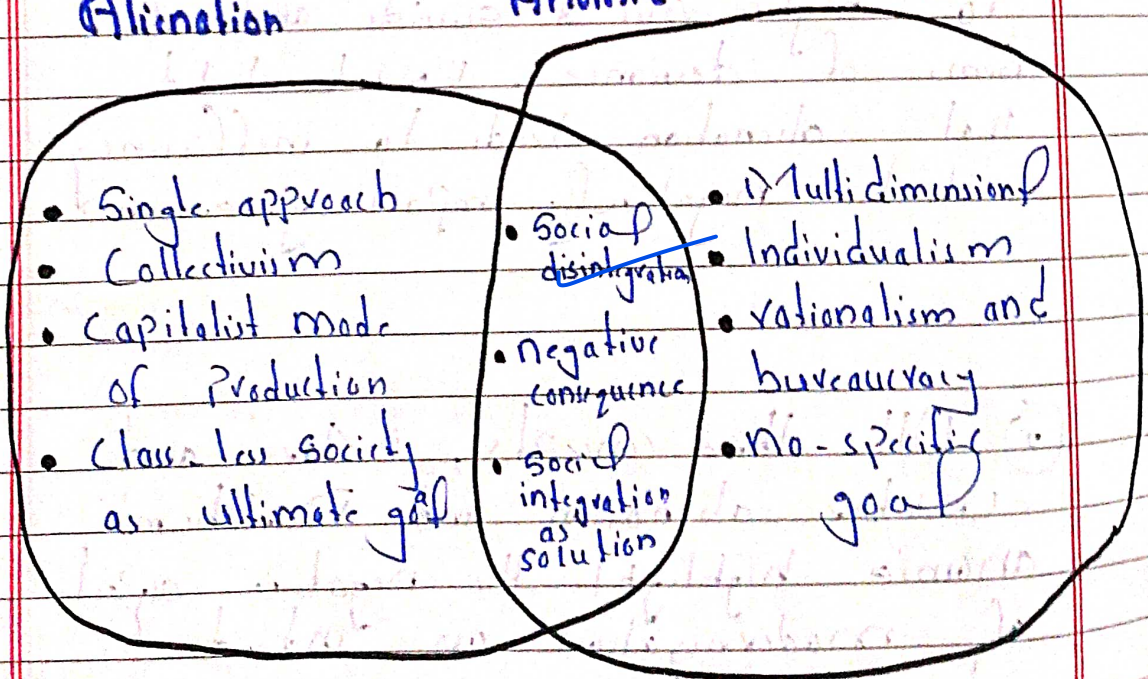 Alienation
• Single approach
• Collectivism
• Capitalist mode
of Production
• Class-less society
as ultimate goal
• Social
disintegration
• negative
consequence
• Social
integration
as
solution
• Multidimensional
• Individualism
• rationalism and
bureaucracy
• no-specific
goal